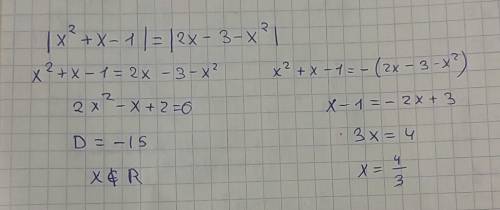 |x² + x - 1| = |2x - 3 - x²|
x² + x - 1 = 2x - 3 - x²
2x² - x + 2 = 0
D = -15
x ∉ R
x² + x - 1 = -(2x - 3 - x²)
x - 1 = -2x + 3
3x = 4
x = 4/3